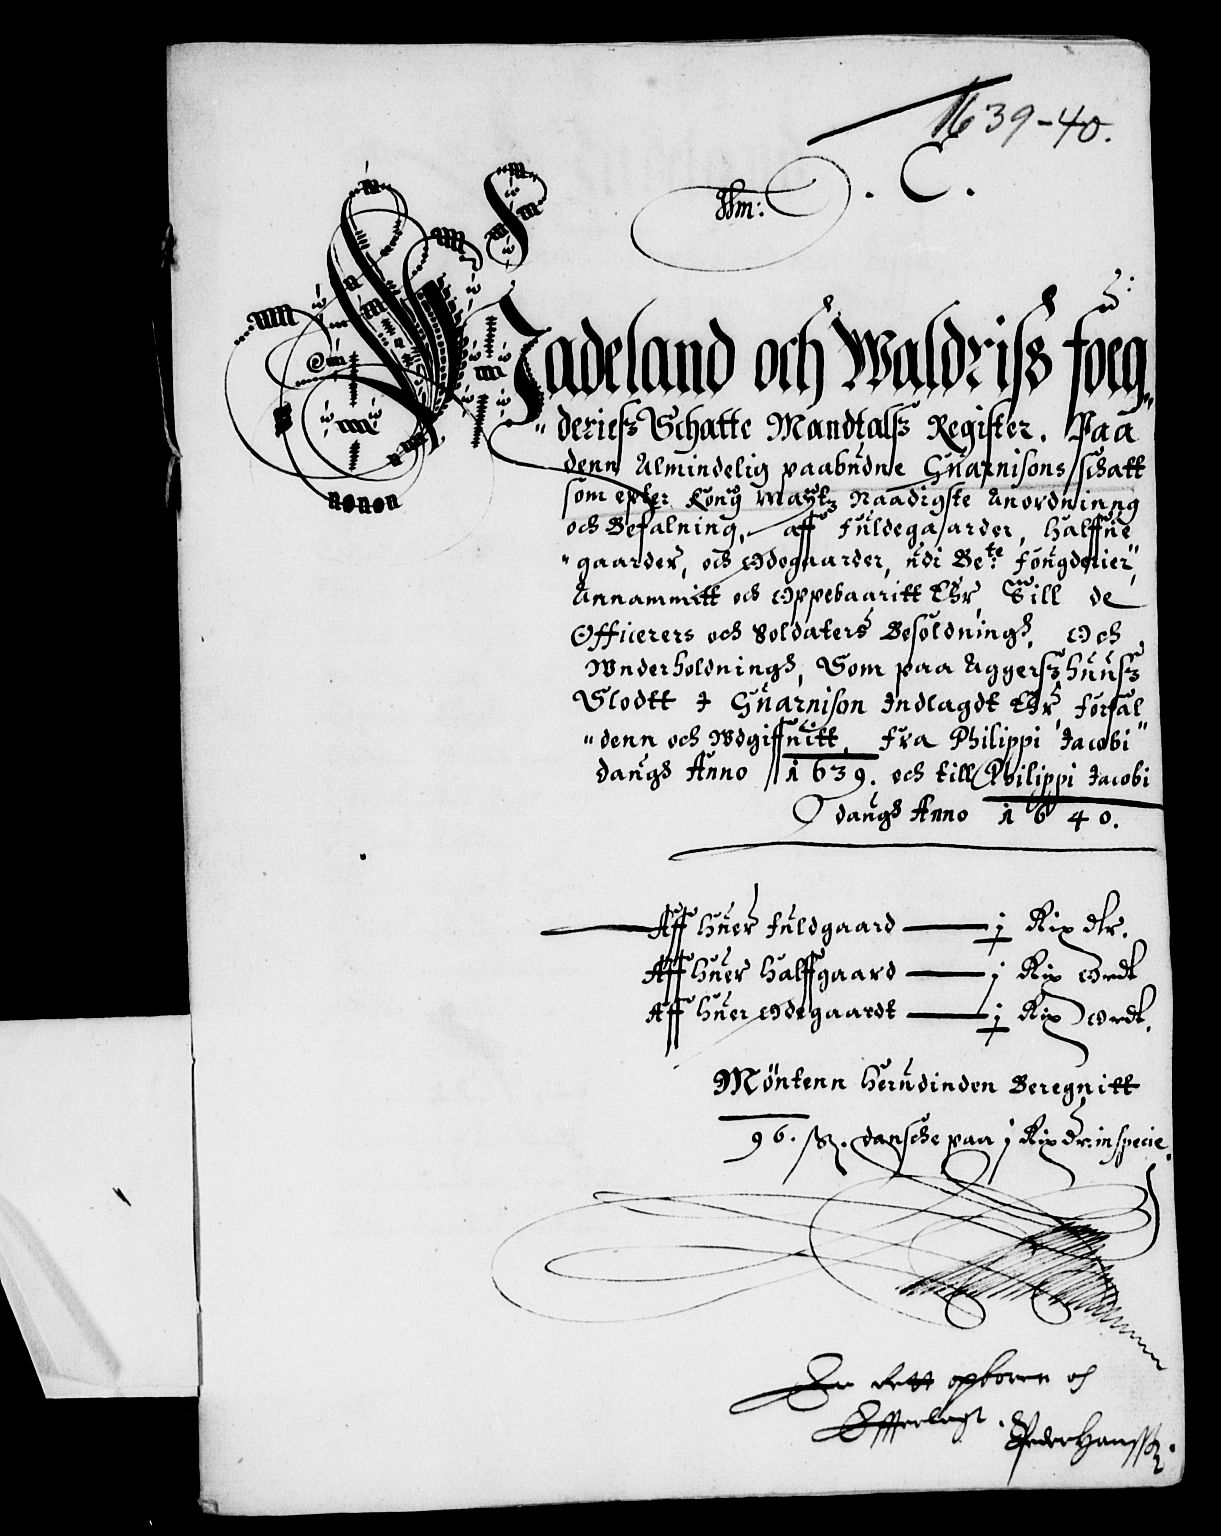 1639-40.
Nm: . C .
Hadeland och Waldriss foug„
„deries Schatte Mandtals Register. Paa
denn Almindelig paabudne Guarnisons schatt
som epter Kong Maytz Naadigste Anordninng
och Befalning, aff fuldegaarder, Halffue
„gaarder, och Ødegaarder, udi Bete: fougderier,
Annammitt och Oppebaaritt Er, Till de
Officerers och Soldaters Besoldning, Och
Wnderholdning, Som paa Aggerszhuusz
Slodtt I Guarnison Indlagdt Er, forfal
„denn och Wdgiffuitt, fra Philippi Jacobi"
daugs Anno 1639. och till Philippi Jacobi
daugs Anno 1640.
Aff huer fuldgaard — j Rix dlr.
Aff huer halffgaard — j Rix Ordt
Aff huer Ødegaardt — j Rix Ordt.
Møntenn herudinden Beregnitt
96. sz. dansche paa j Rix dr: in specie.
Er rett opboren och
Efferlagt. Peder Hanssz.